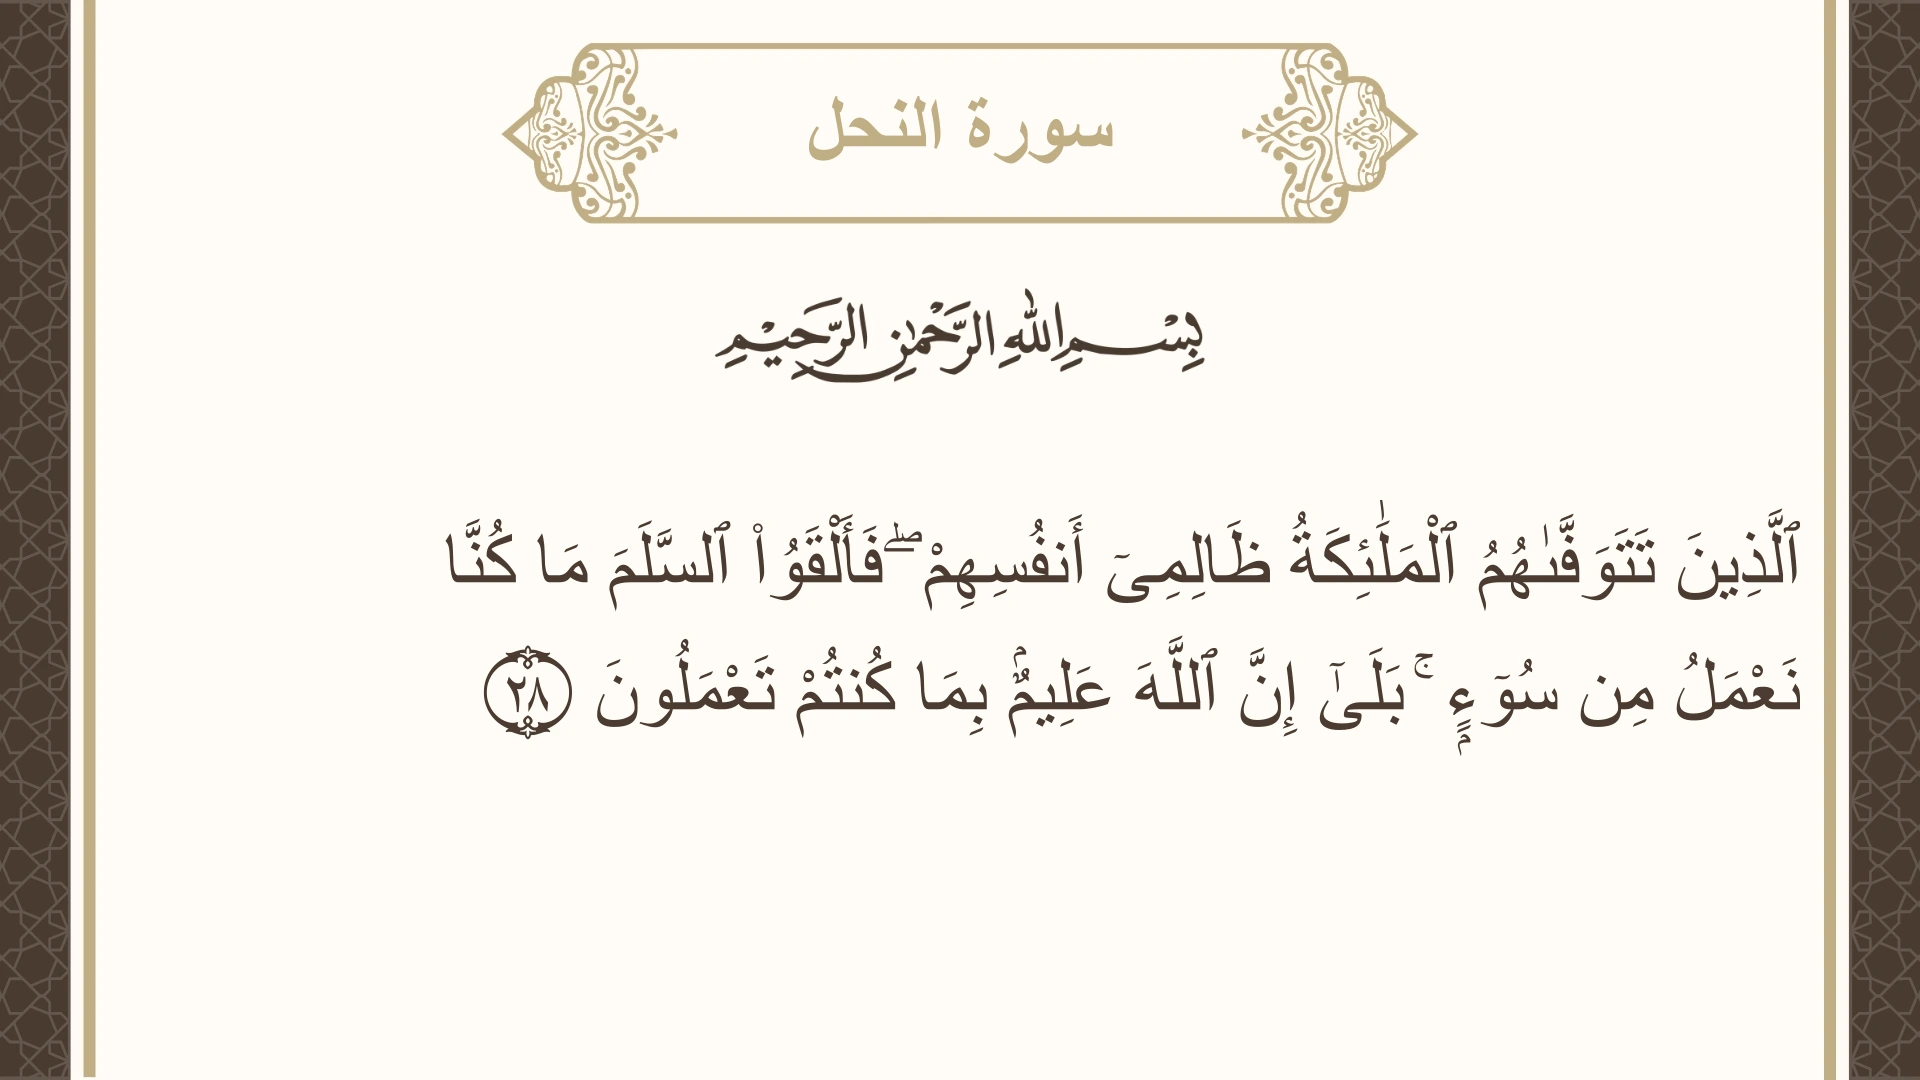 سورة النحل
بِسْمِ اللهِ الرَّحْمٰنِ الرَّحِيْمِ
ٱلَّذِينَ تَتَوَفَّىٰهُمُ ٱلْمَلَـٰٓئِكَةُ ظَالِمِىٓ أَنفُسِهِمْ ۖ فَأَلْقَوُا۟ ٱلسَّلَمَ مَا كُنَّا
نَعْمَلُ مِن سُوٓءٍۭ ۚ بَلَىٰٓ إِنَّ ٱللَّهَ عَلِيمٌۢ بِمَا كُنتُمْ تَعْمَلُونَ ٢٨